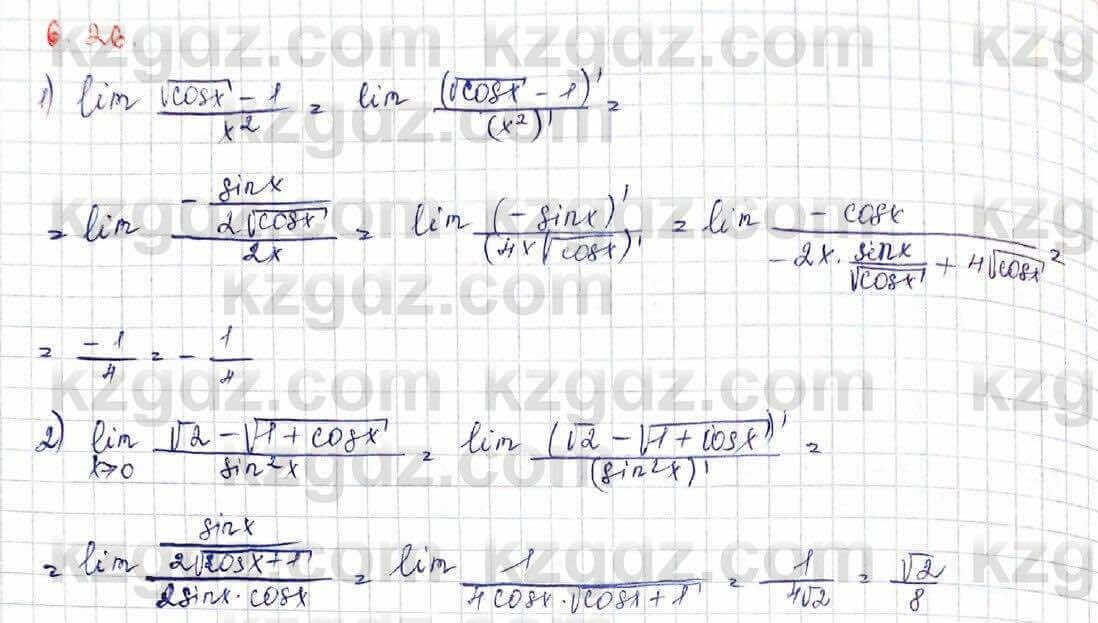 6.26.
1) lim (√cosx - 1)/x² = lim (√cosx - 1)'/(x²)' =
= lim (-sinx/(2√cosx))/(2x) = lim (-sinx)'/(4x√cosx)' = lim (-cosx)/(-2x·sinx/√cosx + 4√cosx) =
= -1/4 = -1/4
2) lim x→0 (√2 - √1+cosx)/sin²x = lim (√2 - √1+cosx)'/(sin²x)' =
= lim (sinx/(2√cosx+1))/(2sinx·cosx) = lim 1/(4cosx·√cosx+1) = 1/(4√2) = √2/8
kzgdz.com